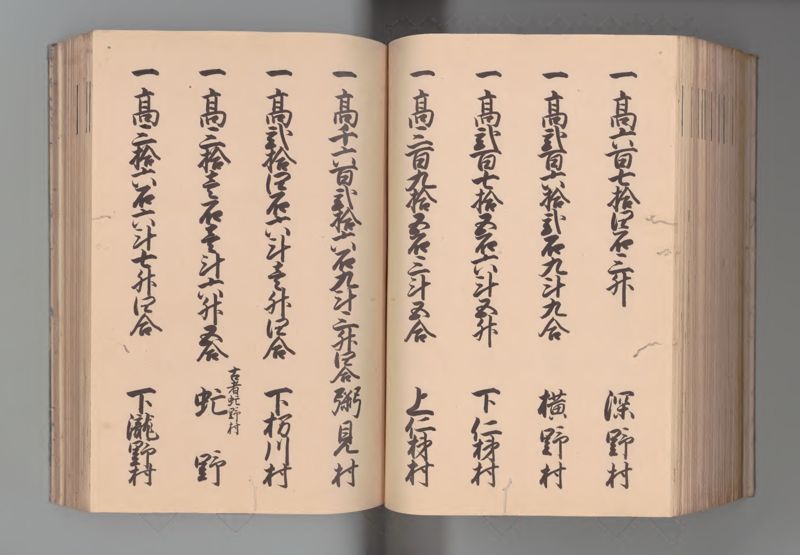 一高六百七拾四石三升 深野村
一高弐百六拾弐石九斗九合 横野村
一高弐百七拾五石六斗五升 下仁柿村
一高三百九拾五石三斗五合 上仁柿村
一高千六百弐拾六石九斗三升四合 粥見村
一高弐拾四石六斗壱升四合 下村
古者虻野村
一高三拾壱石壱斗六升五合 虻野
一高三拾六石六斗七升四合 下瀧野村